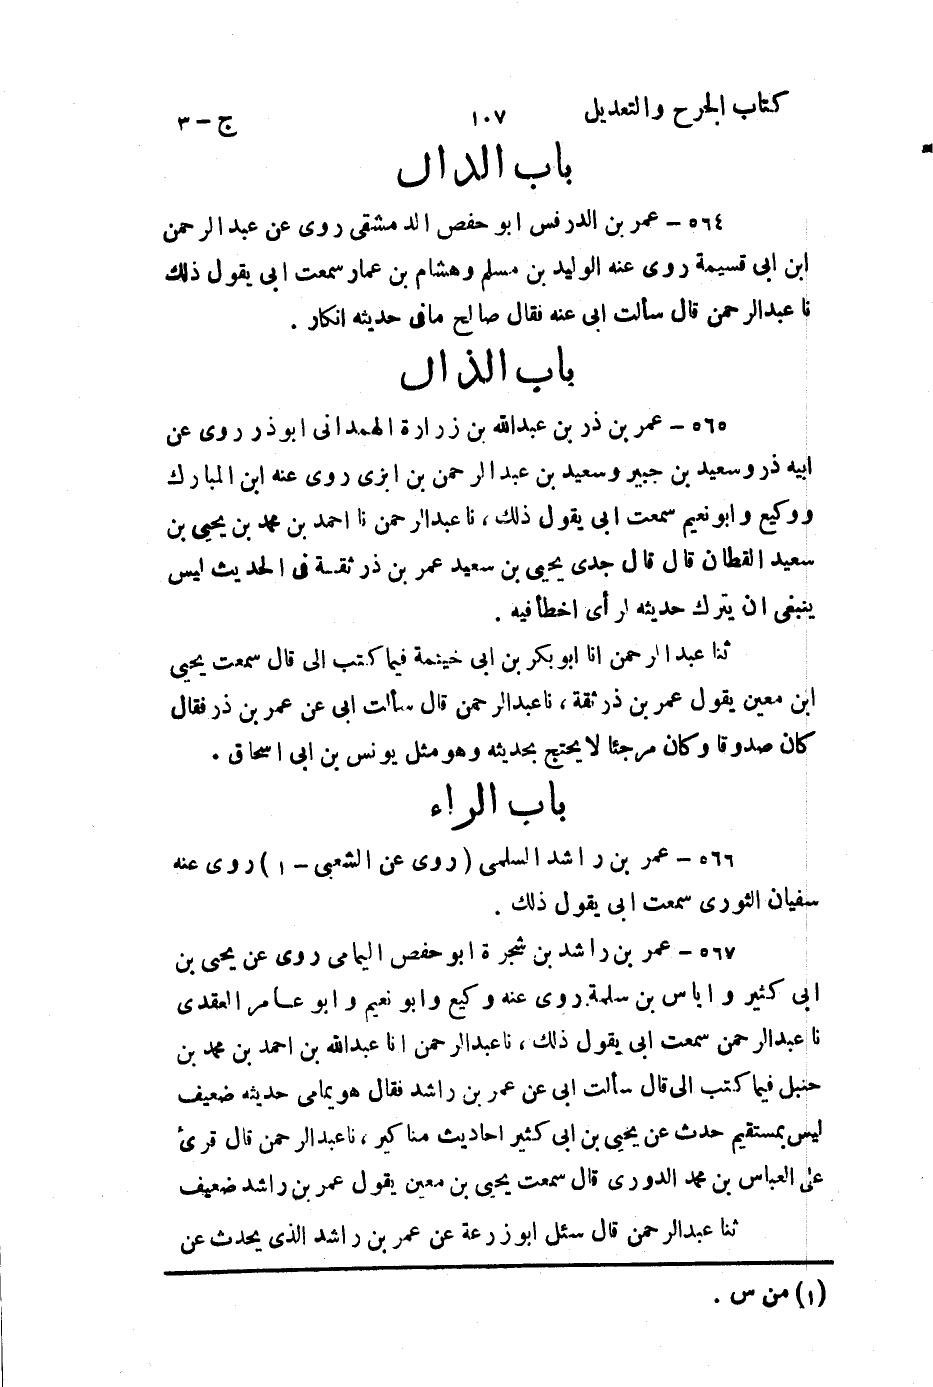 كتاب الجرح والتعديل ١٠٧ ج - ٣
باب الدال
٥٦٤ - عمر بن الدرفس ابو حفص الدمشقى روى عن عبد الرحمن
ابن ابى قسيمة روى عنه الوليد بن مسلم وهشام بن عمار سمعت ابى يقول ذلك
نا عبدالرحمن قال سألت ابى عنه فقال صالح مافى حديثه انكار .
باب الذال
٥٦٥ - عمر بن ذر بن عبدالله بن زرارة الهمدانى ابو ذر روى عن
ابيه ذر وسعيد بن جبير وسعيد بن عبد الرحمن بن ابزى روى عنه ابن المبارك
ووكيع وابو نعيم سمعت ابى يقول ذلك ، نا عبدالرحمن نا احمد بن محمد بن يحيى بن
سعيد القطان قال قال جدى يحيى بن سعيد عمر بن ذر ثقة فى الحديث ليس
ينبغى ان يترك حديثه لرأى اخطأ فيه .
ثنا عبد الرحمن انا ابو بكر بن ابى خيثمة فيما كتب الى قال سمعت يحيى
ابن معين يقول عمر بن ذر ثقة ، نا عبدالرحمن قال سألت ابى عن عمر بن ذر فقال
كان صدوقا وكان مرجئا لا يحتج بحديثه وهو مثل يونس بن ابى اسحاق .
باب الراء
٥٦٦ - عمر بن راشد السلمى ( روى عن الشعبى - ١ ) روى عنه
سفيان الثورى سمعت ابى يقول ذلك .
٥٦٧ - عمر بن راشد بن شجرة ابو حفص اليمامى روى عن يحيى بن
ابى كثير و اياس بن سلمة روى عنه وكيع وابو نعيم و ابو عامر العقدى
نا عبدالرحمن سمعت ابى يقول ذلك ، نا عبدالرحمن انا عبدالله بن احمد بن محمد بن
حنبل فيما كتب الى قال سألت ابى عن عمر بن راشد فقال هو يمامى حديثه ضعيف
ليس بمستقيم حدث عن يحيى بن ابى كثير احاديث مناكير ، نا عبدالرحمن قال قرئ
على العباس بن محمد الدورى قال سمعت يحيى بن معين يقول عمر بن راشد ضعيف
ثنا عبدالرحمن قال سئل ابو زرعة عن عمر بن راشد الذى يحدث عن
(١) من س .